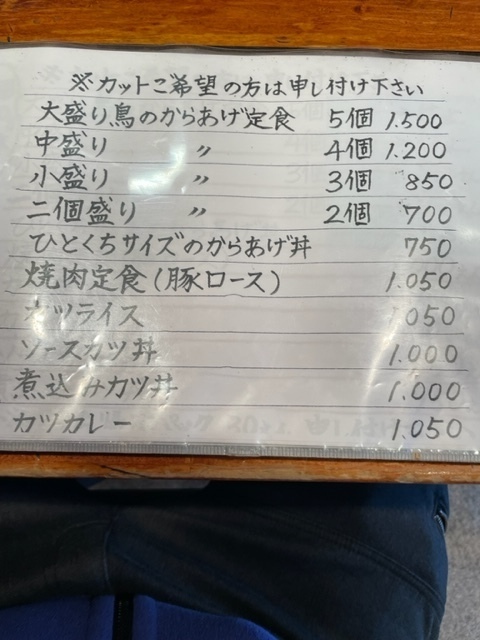 ※カットご希望の方は申し付け下さい
大盛り鳥のからあげ定食 5個 1.500
中盛り 〃 4個 1.200
小盛り 〃 3個 850
二個盛り 〃 2個 700
ひとくちサイズのからあげ丼 750
焼肉定食(豚ロース) 1.050
カツライス 1.050
ソースカツ丼 1.000
煮込みカツ丼 1.000
カツカレー 1.050